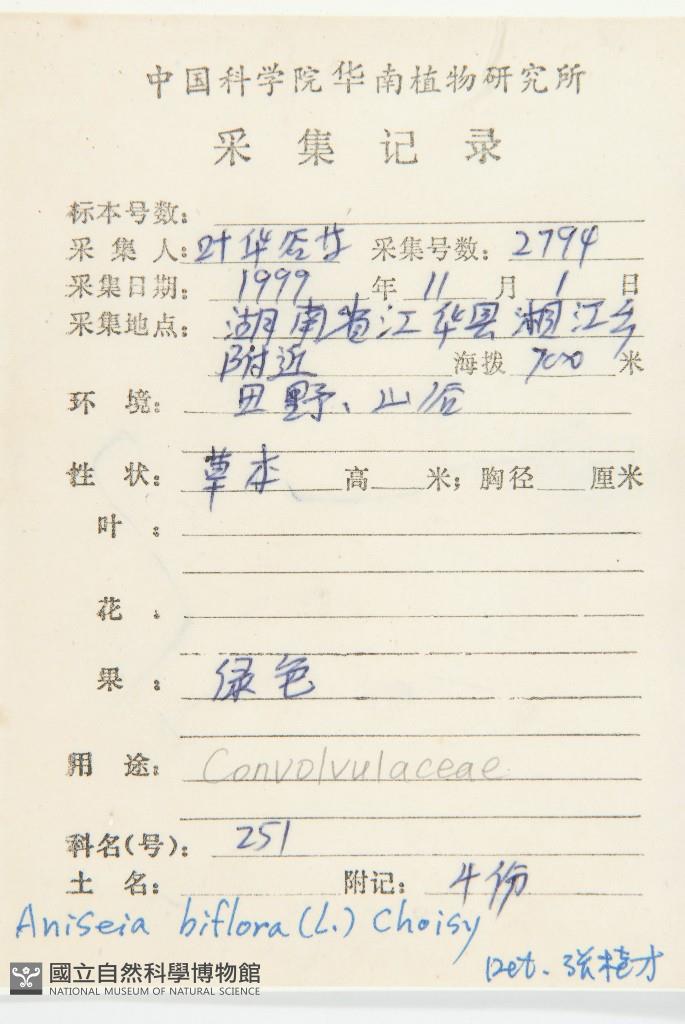 中国科学院华南植物研究所
采集记录
标本号数：
采集人：叶华谷 采集号数：2794
采集日期：1999年11月1日
采集地点：湖南省江华县湘江乡
附近 海拨 700 米
环境：田野、山谷
性状：草本 高 米；胸径 厘米
叶：
花：
果：绿色
用途：Convolvulaceae
科名(号)：251
土名： 附记：4份
Aniseia biflora (L.) Choisy
Det. 张桂才
國立自然科學博物館
NATIONAL MUSEUM OF NATURAL SCIENCE